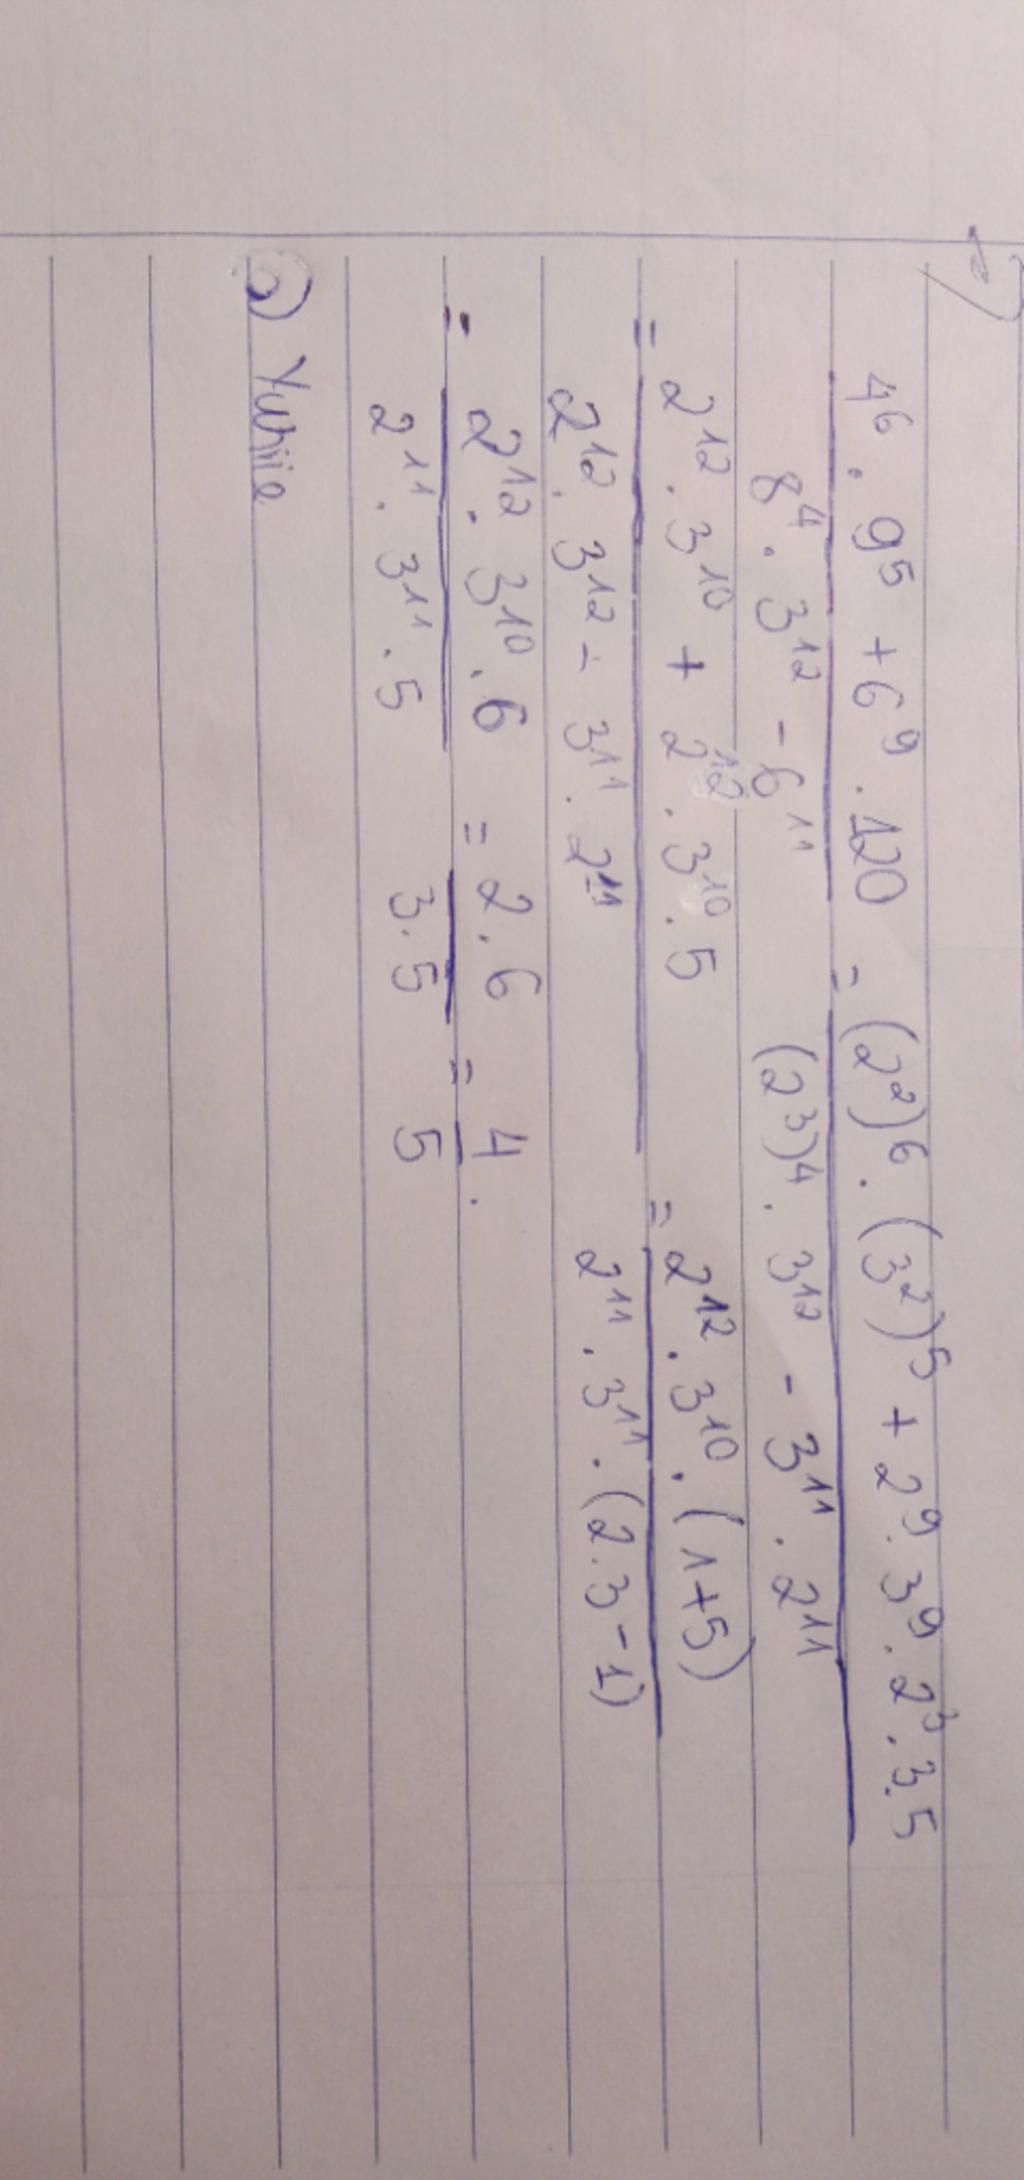 4⁶ . 9⁵ + 6⁹ . 120 / 8⁴ . 3¹² - 6¹¹ = (2²)⁶ . (3²)⁵ + 2⁹ . 3⁹ . 2³ . 3 . 5 / (2³)⁴ . 3¹² - 3¹¹ . 2¹¹
= 2¹² . 3¹⁰ + 2¹² . 3¹⁰ . 5 / 2¹² . 3¹² - 3¹¹ . 2¹¹ = 2¹² . 3¹⁰ . (1+5) / 2¹¹ . 3¹¹ . (2.3-1)
= 2¹² . 3¹⁰ . 6 / 2¹¹ . 3¹¹ . 5 = 2 . 6 / 3 . 5 = 4 / 5 .
@) Yuhiie